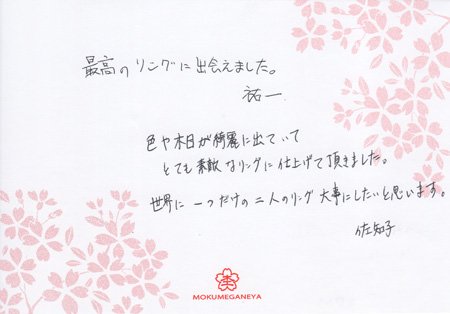 最高のリングに出会えました。
祐一
色や木目が綺麗に出ていて
とても素敵なリングに仕上げて頂きました。
世界に一つだけの二人のリング大事にしたいと思います。
佐知子
MOKUMEGANEYA